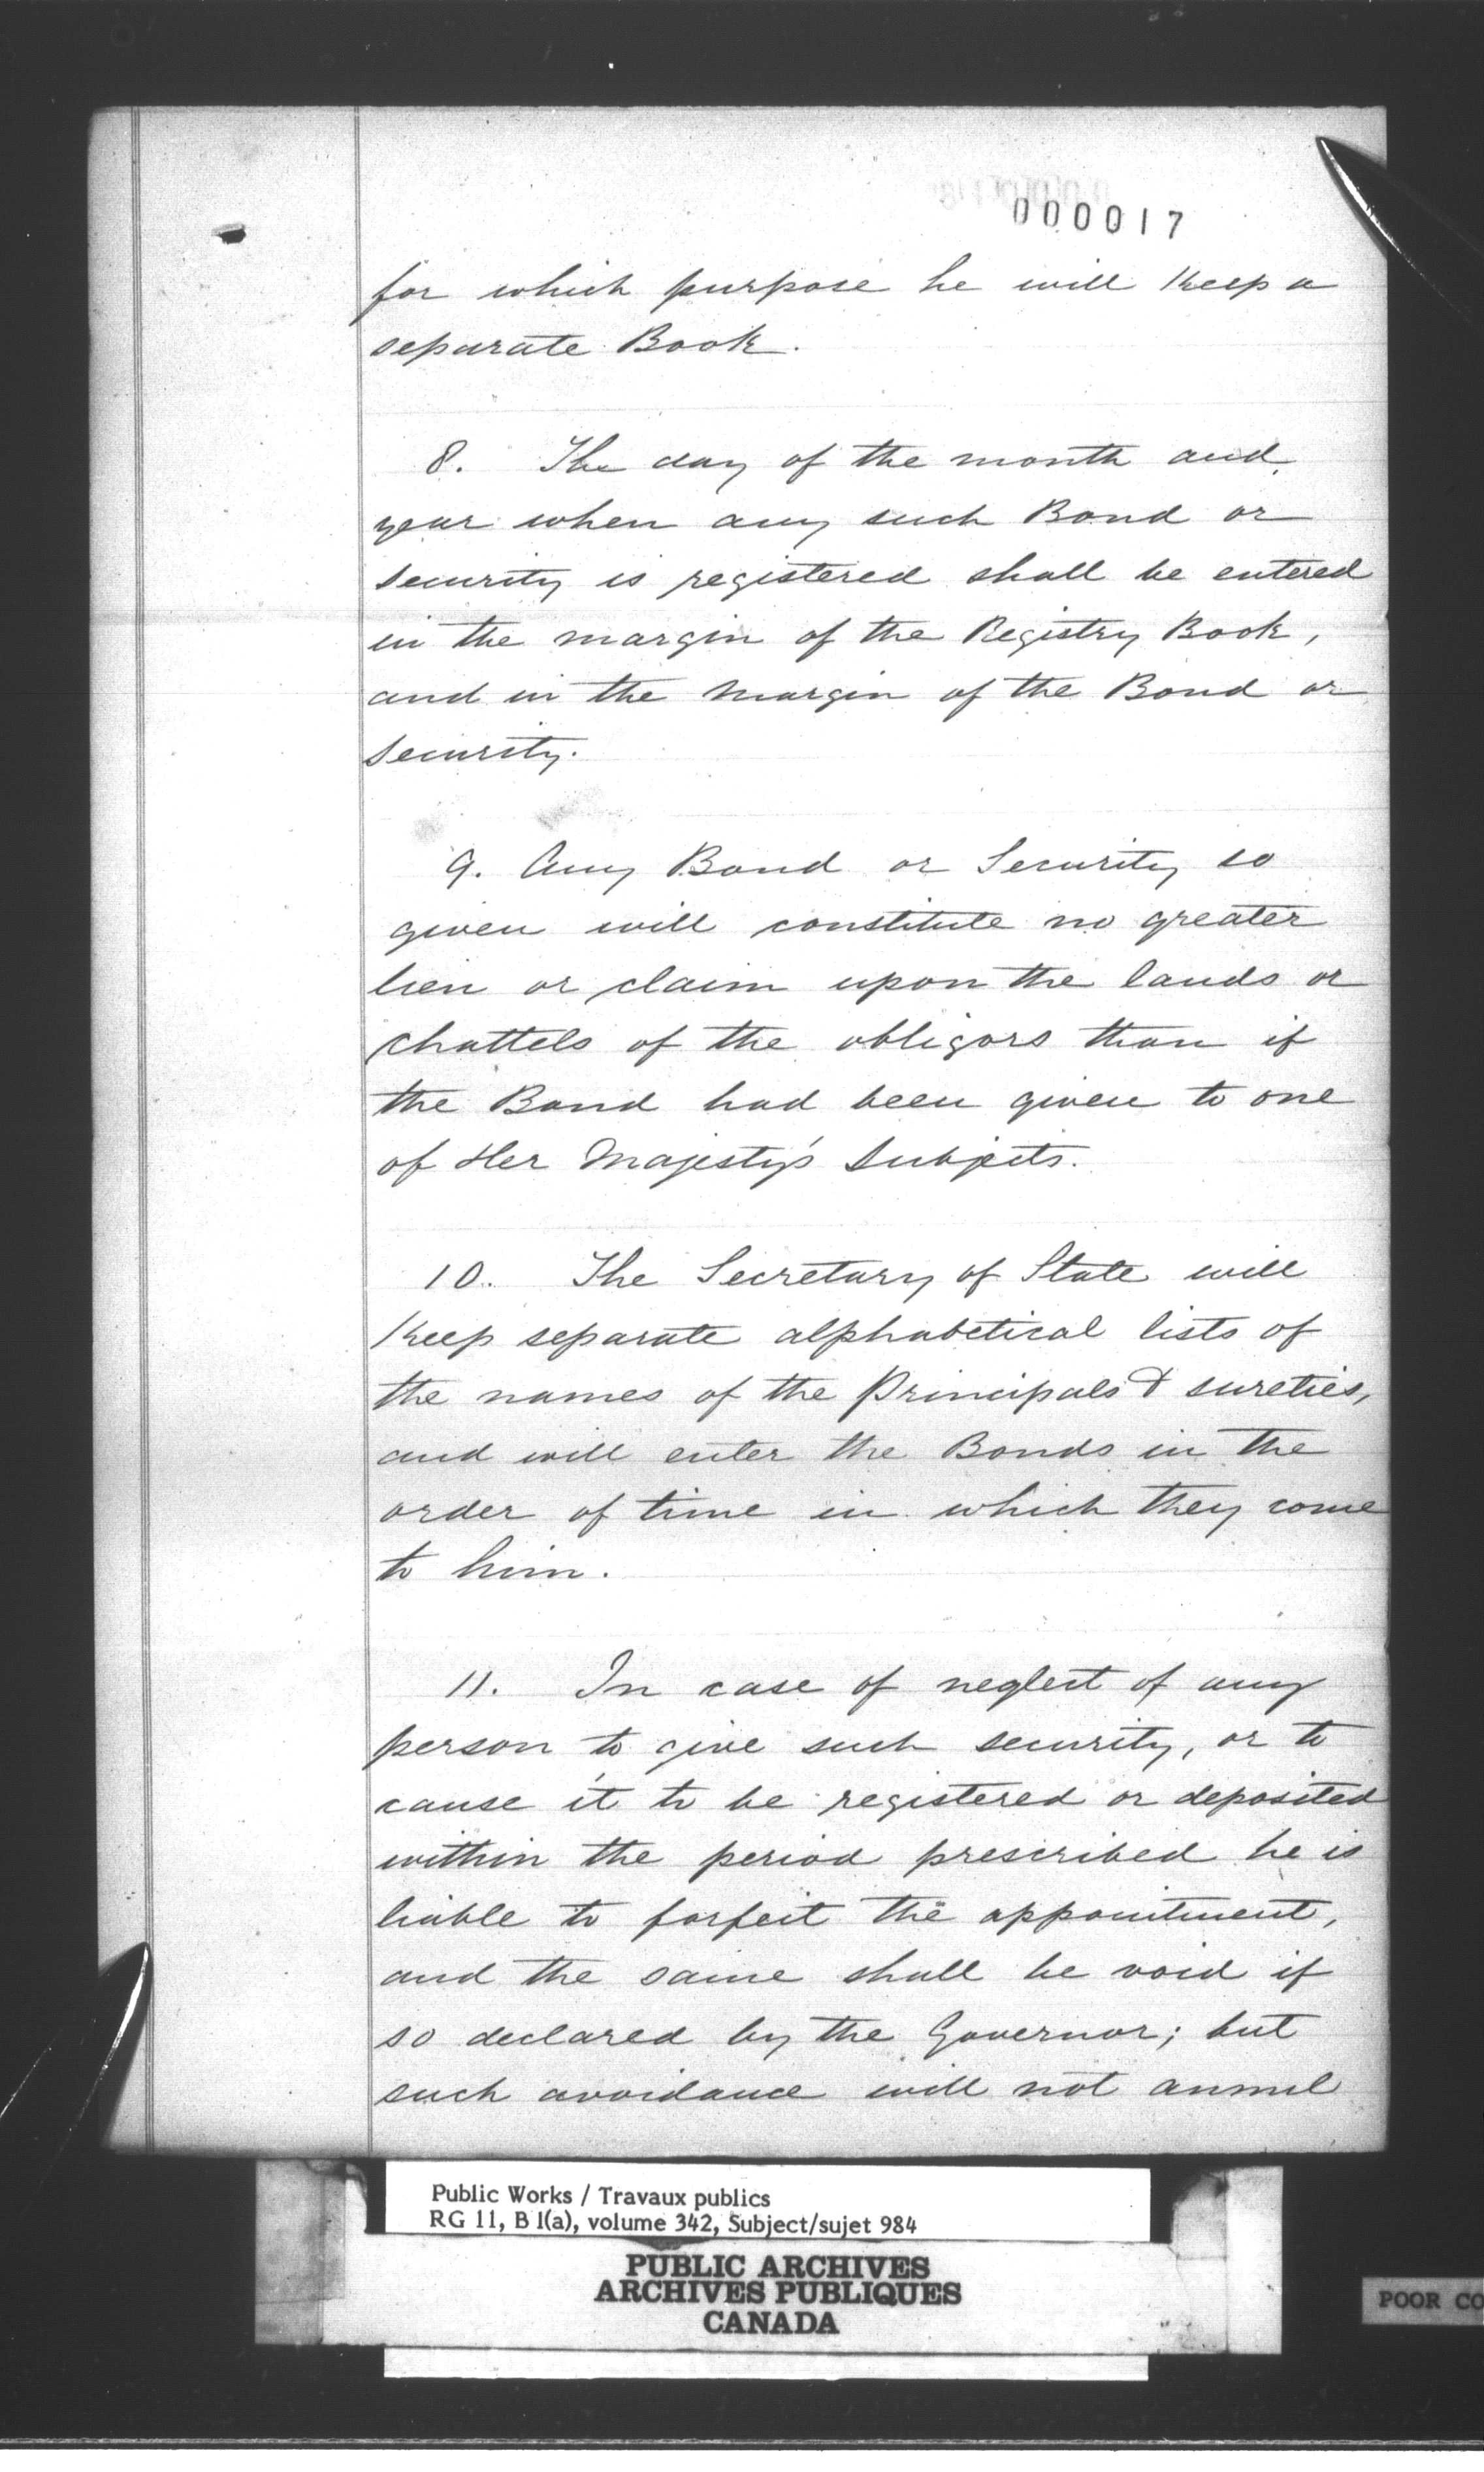 000017
for which purpose he will keep a
separate Book.
8. The day of the month and
year when any such Bond or
security is registered shall be entered
in the margin of the Registry Book,
and in the margin of the Bond or
security.
9. Any Bond or Security so
given will constitute no greater
lien or claim upon the lands or
chattels of the obligors than if
the Bond had been given to one
of Her Majesty's Subjects.
10. The Secretary of State will
keep separate alphabetical lists of
the names of the Principals & sureties,
and will enter the Bonds in the
order of time in which they come
to him.
11. In case of neglect of any
person to give such security, or to
cause it to be registered or deposited
within the period prescribed he is
liable to forfeit the appointment,
and the same shall be void if
so declared by the Governor; but
such avoidance will not annul
Public Works / Travaux publics
RG 11, B 1(a), volume 342, Subject/sujet 984
PUBLIC ARCHIVES
ARCHIVES PUBLIQUES
CANADA
POOR CO